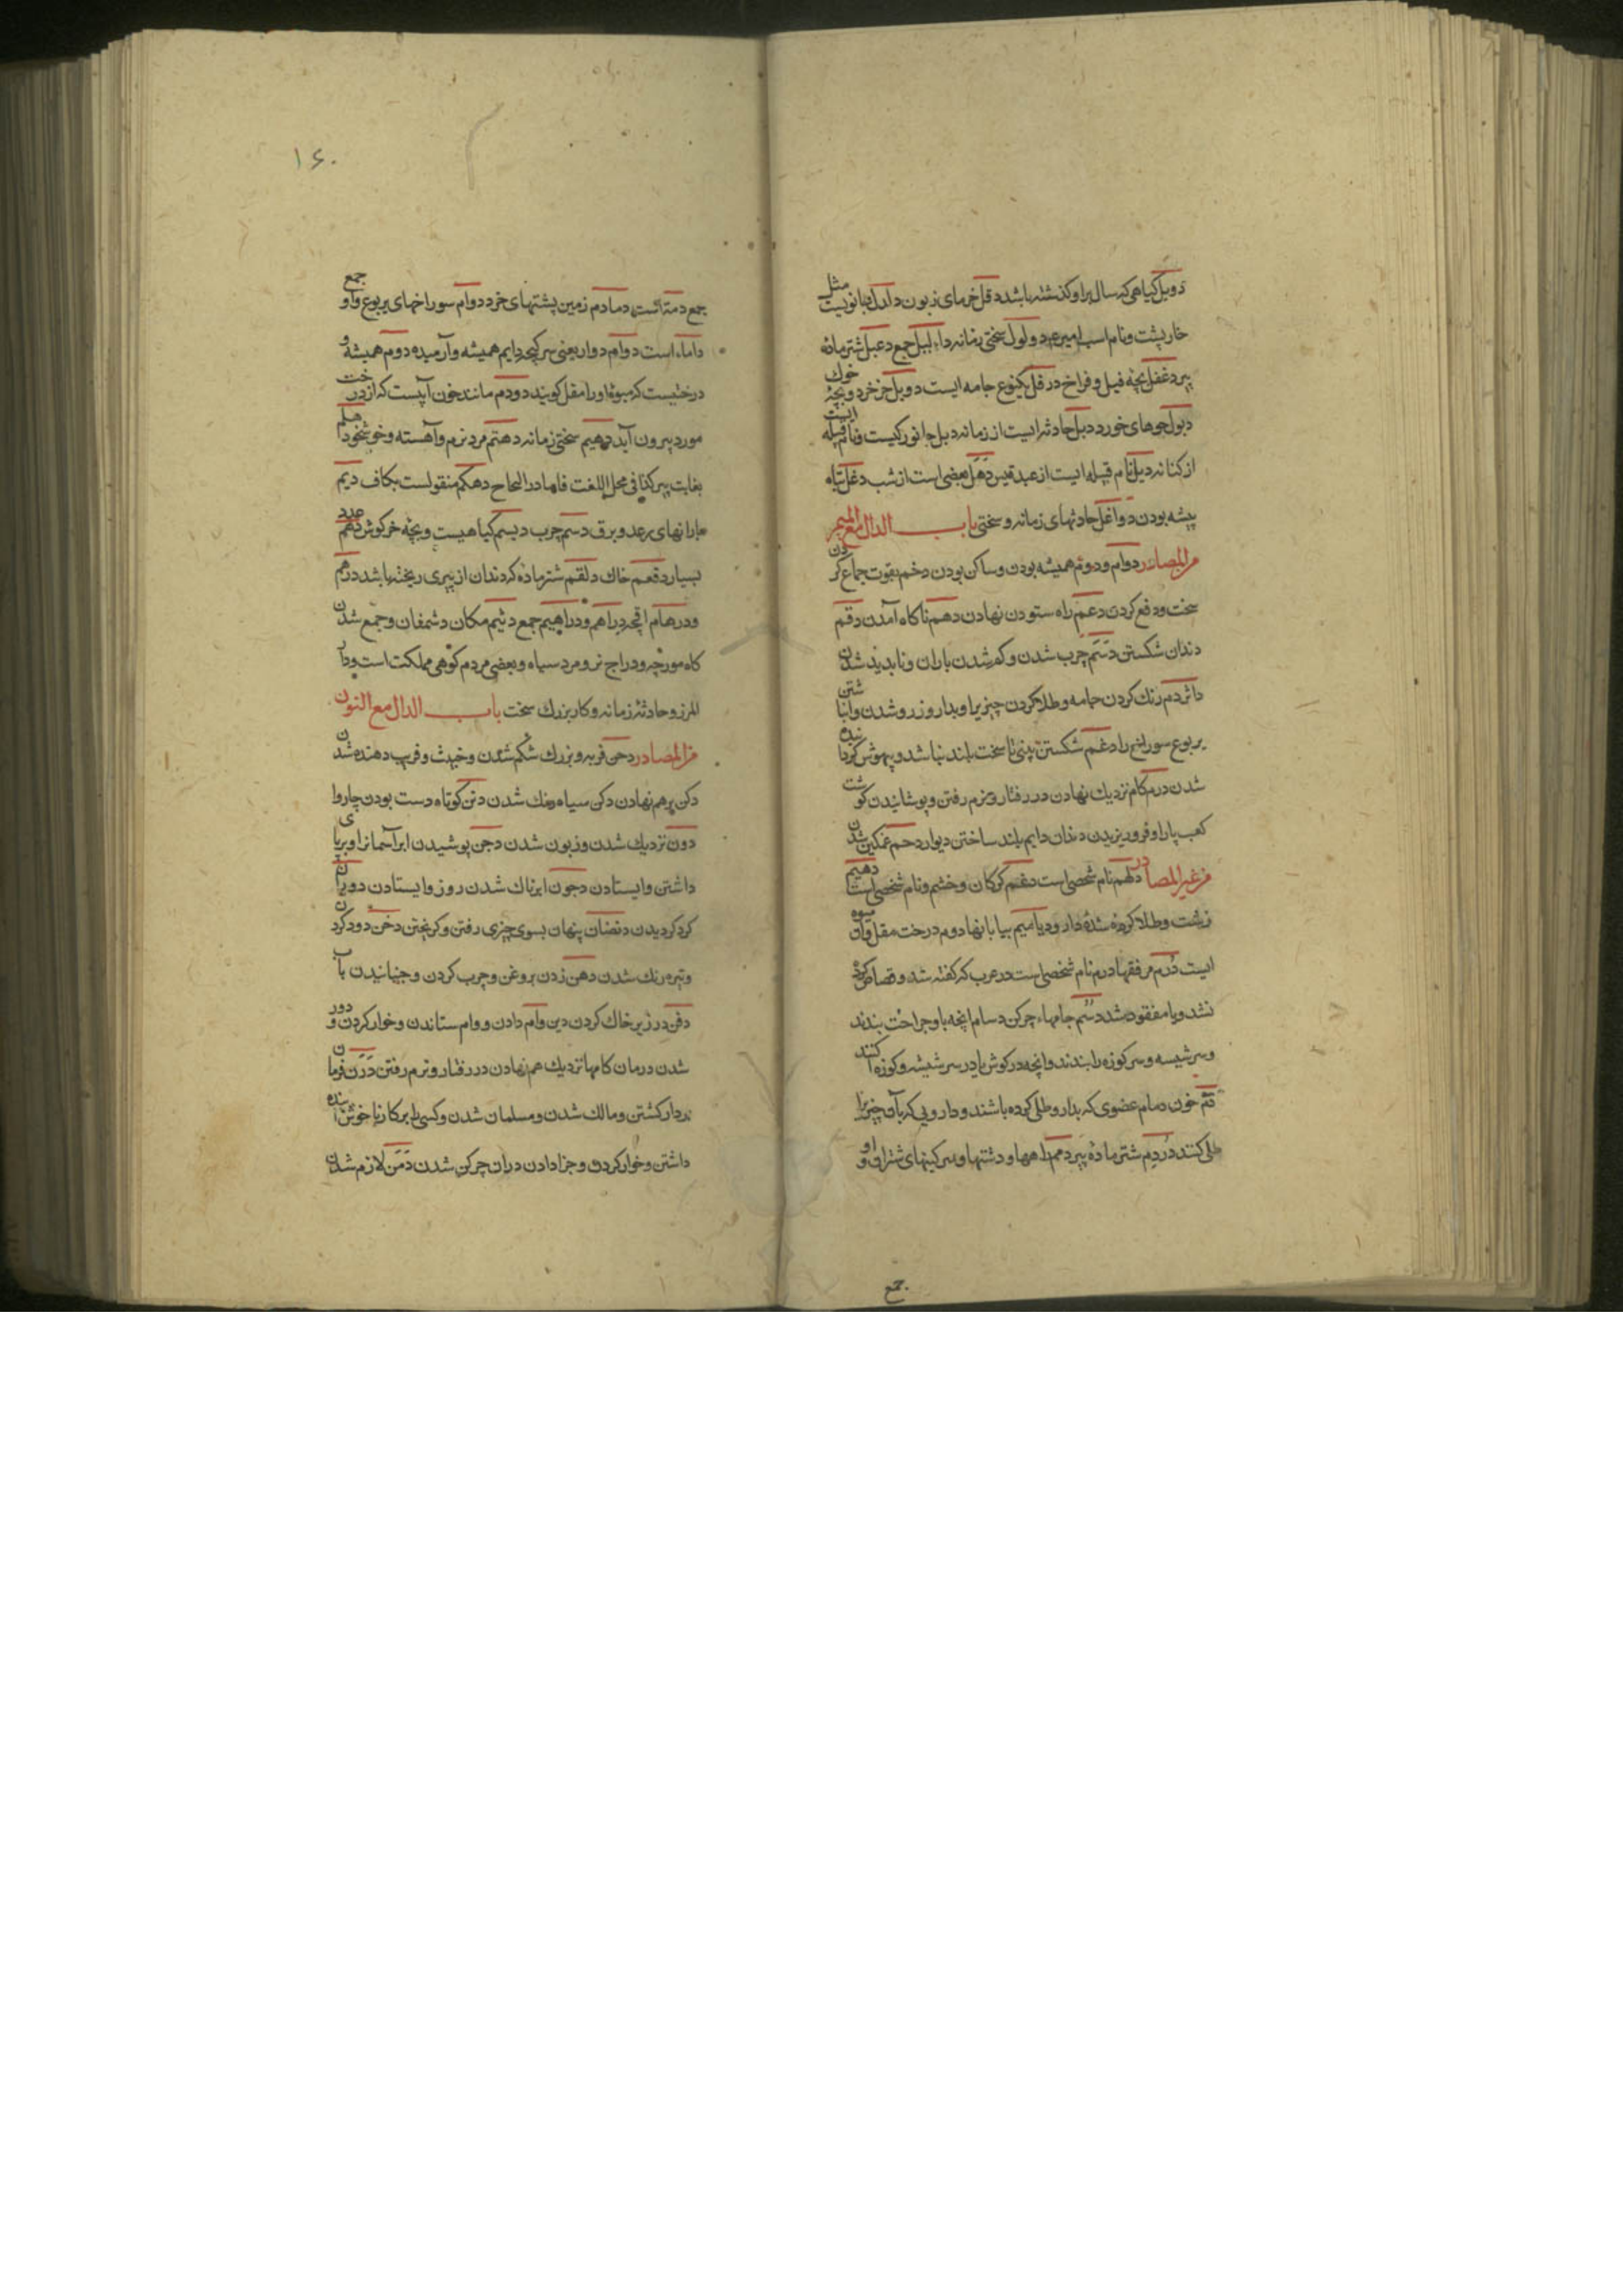 دویل گیاهی که سال براو کذشته باشد دقل خرمای زبون دلدل جانوریست مثل
خارپشت ونام اسب امیر دولول سختی زمانه جمع دعبل شتر ماده
پیر دغفل بچه فیل و فراخ درقل یکنوع جامه ایست دوبل خر خرد وبچه خوک
دبول جوهای خورد دبل حادثه ایست از زمانه دیل جانورکیست ونام قبیله ایست
از کنانه دیل نام قبیله ایست از عبد قیس دهل بعضی است از شب دغل تباه
پیشه بودن دواغل حادثهای زمانه و سختی باب الدال مع المیم
من المصادر دوام ودوم همیشه بودن وساکن بودن دخم بقوت جماع کردن
سخت ودفع کردن دعم راه ستودن نهادن دهم ناکاه آمدن دقم
دندان شکستن دسم چرب شدن وکم شدن باران وناپدید شدن
داثر دم رنک کردن جامه وطلا کردن چیزیرا وبدار وزرو شدن وانباشتن
یربوع سوراخ را دغم شکستن بینی تا سخت بلند نباشد وبیهوش کرداننده
شدن درم کام نزدیک نهادن در رفتار ونرم رفتن وپوشانیدن کوشت
کعب پارا وفروریزیدن دندان دایم بلند ساختن دیوار دحم غمکین شدن
من غیر المصادر دلهم نام شخصی است دغم کرکان وخشم ونام شخصی است دهیم
زشت وطلا کرده شده دارو دیامیم بیابانها دوم درخت مقل وآن میوه
ایست درم مرفقها درم نام شخصی است در عرب که کفته شد وقصاص کرده
نشد ویا مفقود شد دسم جامهاء چرکن دسام انچه باو جراحت بندند
وسر شیسه وسر کوزه را بندند وانچه در کوش یا در سر شیشه وکوزه کنند
دم خون دمام عضوی که بدار وطلی کرده باشند ودارویی که بآن چیزیرا
طلی کنند دردم شتر ماده پیر دمم راهها ودشتها وسرکینهای شتران واو
جمع
۱۶۰
جمع دمة است دمادم زمین پشتهای خرد دوام سوراخهای یربوع واو جمع
داماء است دوام دوار یعنی سرکیجه دایم همیشه وآرمیده دوم همیشه و
درختیست که میوه اورا مقل کویند دودم مانند خون آبیست که از درخت
مورد بیرون آید دهیم سختی زمانه دهثم مرد نرم وآهسته وخوشخو دلهم
بغایت پیر کذا فی مجمل اللغت فاما در الصحاح دهکم منقولست بکاف دیم
بارانهای برعد وبرق دسم چرب دیسم کیاهیست وبچه خرکوش دهم عدد
بسیار دقعم خاک دلقم شتر ماده که دندان از پیری ریخته باشد درهم
ودرهام اقچه دراهم ودراهیم جمع دثیم مکان دشمفان وجمع شدن
کاه مورچه ودراج نر ومرد سیاه وبعضی مردم کوهی مملکت است ودار
المرز وحادثه زمانه وکار بزرک سخت باب الدال مع النون
من المصادر دحن فربه وبزرک شکم شدن وخبث وفریب دهنده شدن
دکن برهم نهادن دکن سیاه رنک شدن دنن کوتاه دست بودن چاروای
دون نزدیک شدن وزبون شدن دجن پوشیدن ابر آسمانرا وبرپا
داشتن وایستادن دجون ابرناک شدن روز وایستادن دوران
کرد کردیدن دنضان پنهان بسوی چیزی رفتن وکریختن دخن دود کردن
وتیره رنک شدن دهن زدن بروغن وچرب کردن وجنبانیدن بآب
دفن در زیر خاک کردن دین وام دادن ووام ستاندن وخوار کردن ودور
شدن درمان کامها نزدیک هم نهادن در رفتار ونرم رفتن درن فرمان
بردار کشتن ومالک شدن ومسلمان شدن وکسی را بر کار ناخوش آینده
داشتن وخوار کردن وجزا دادن دران چرکن شدن دمن لازم شدن